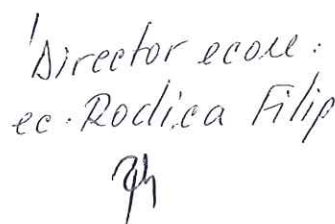 Director econ.
ec. Rodica Filip